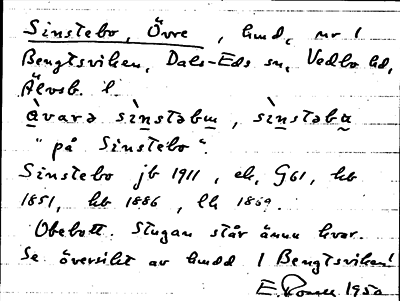 Sinstebo, Övre, hmd, nr 1
Bengtsviken, Dals-Eds sn, Vedbo hd,
Älvsb. l.
àvarə sìnstəbɯ, sìnstəba
"på Sinstebo".
Sinstebo jb 1911, ek, G61, hb
1851, hb 1886, lh 1869.
Obebott. Stugan står ännu kvar.
Se översikt av hmdd I Bengtsviken!
E. 1950